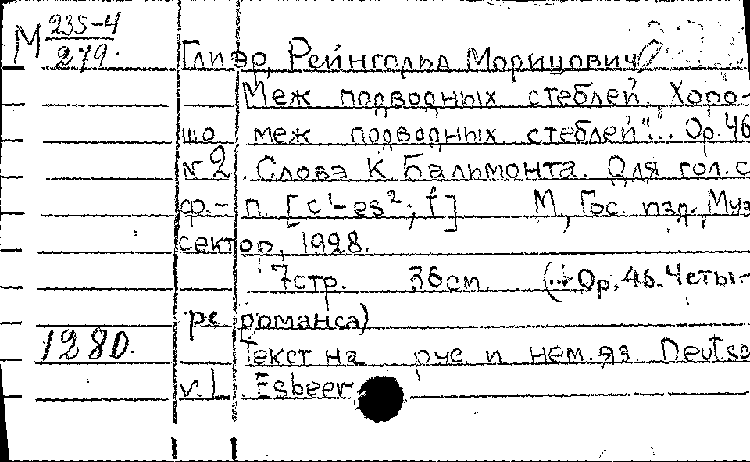 М 235-4
279.
Глиэр, Рейнгольд Морицович
Меж подводных стеблей. "Хоро-
шо меж подводных стеблей"... Ор.46
№2. Слова К. Бальмонта. Для гол. с
ф.-п. [c¹-es²; f] М, Гос. изд., Муз
сектор, 1928.
7стр. 36см (... Ор. 46. Четы-
ре романса)
1280.
Текст на рус. и нем.яз. Deutsc
v. L. Esbeer